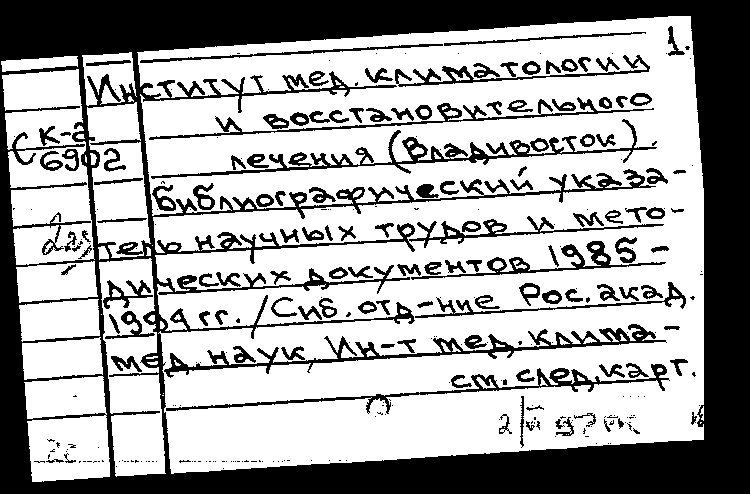 1.
Институт мед. климатологии
и восстановительного
С К-а
6902
лечения (Владивосток).
Библиографический указа-
тель научных трудов и мето-
дических документов 1985-
1994 гг. / Сиб. отд-ние Рос. акад.
мед. наук, Ин-т мед. клима-
см. след. карт.
2с